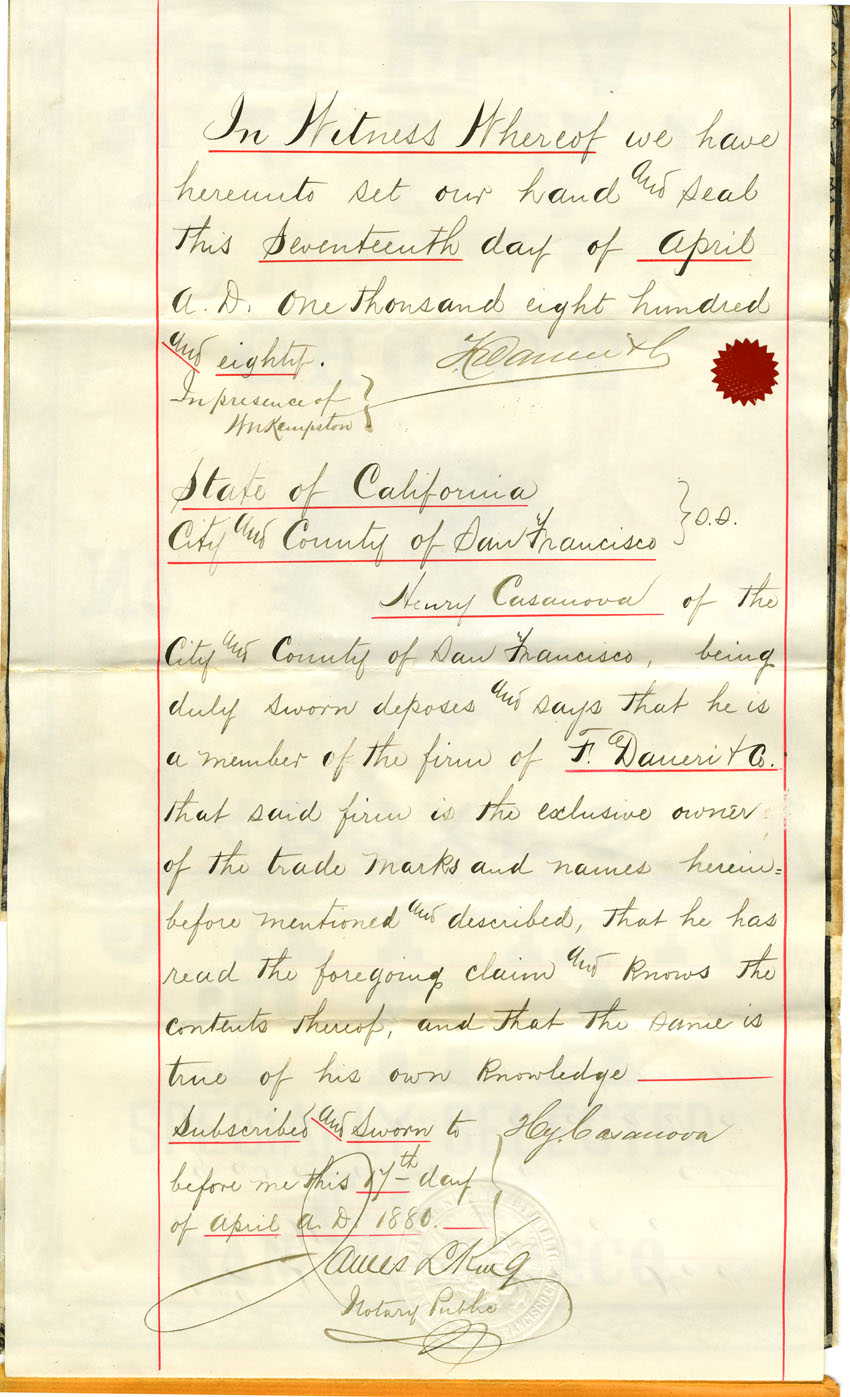 In Witness Whereof we have
hereunto set our hand and seal
this Seventeenth day of April
A.D. One thousand eight hundred
and eighty. F. Daneri & Co
In presence of
Wm Kempston
State of California
City and County of San Francisco } S.S.
Henry Casanova of the
City and County of San Francisco, being
duly sworn deposes and says that he is
a member of the firm of F. Daneri & Co.
that said firm is the exclusive owner
of the trade marks and names herein=
before mentioned and described, that he has
read the foregoing claim and knows the
contents thereof, and that the same is
true of his own knowledge
Subscribed and Sworn to } Hy. Casanova
before me this 17th day
of April A.D. 1880.
James L King
Notary Public